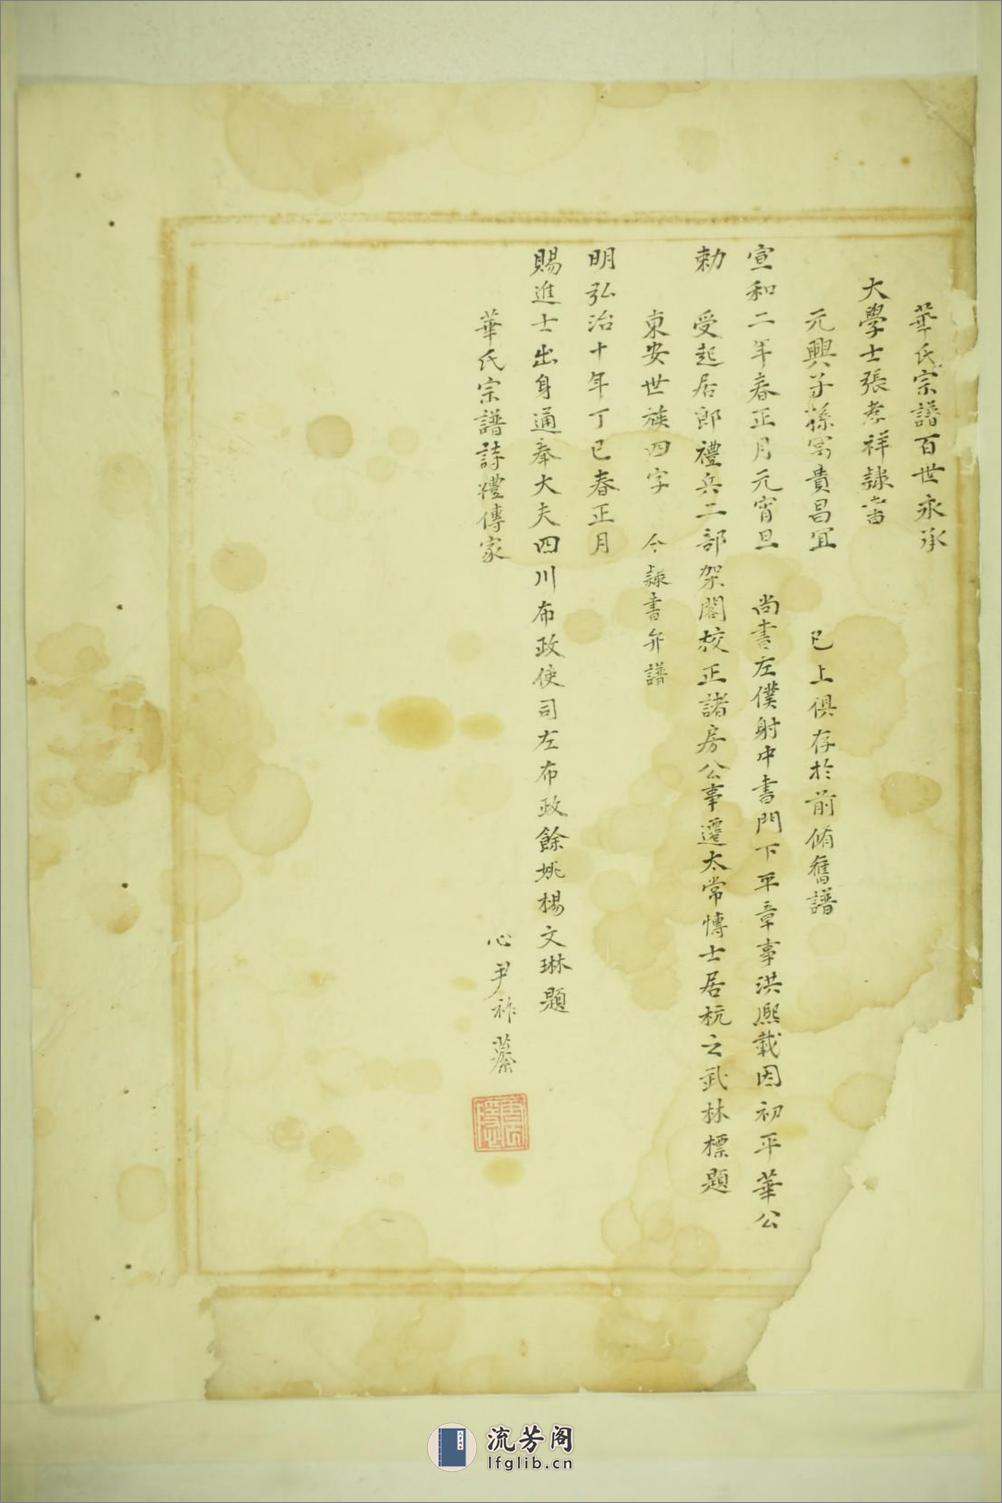 華氏宗譜百世永承
大學士張孝祥隸書
元興子孫富貴昌宜 已上俱存於前脩舊譜
宣和二年春正月元宵旦 尚書左僕射中書門下平章事洪熈載因初平華公
勅 受起居郎禮兵二部架閣校正諸房公事遷太常愽士居杭之武林標題
東安世族四字 今隸書弁譜
明弘治十年丁巳春正月
賜進士出身通奉大夫四川布政使司左布政餘姚楊文琳題
華氏宗譜詩禮傳家
心尹祚纂
流芳阁
lfglib.cn